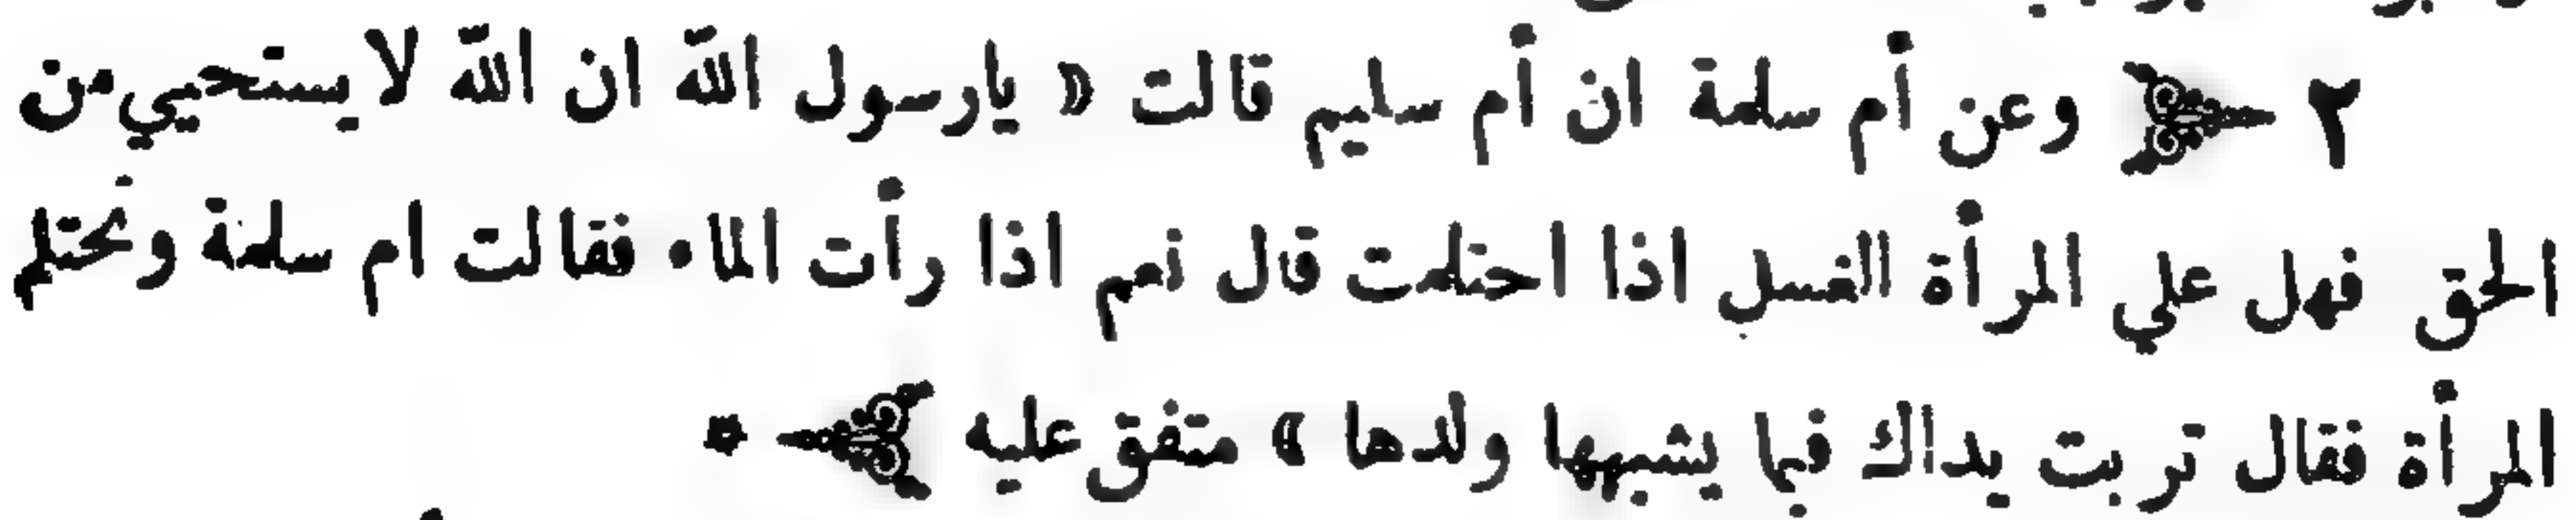 ٢ ﴿ وعن أم سلمة ان أم سليم قالت « يارسول الله ان الله لا يستحيي من
الحق فهل علي المرأة الغسل اذا احتلمت قال نعم اذا رأت الماء فقالت ام سلمة وتحتلم
المرأة فقال تربت يداك فبما يشبهها ولدها » متفق عليه ﴾ *